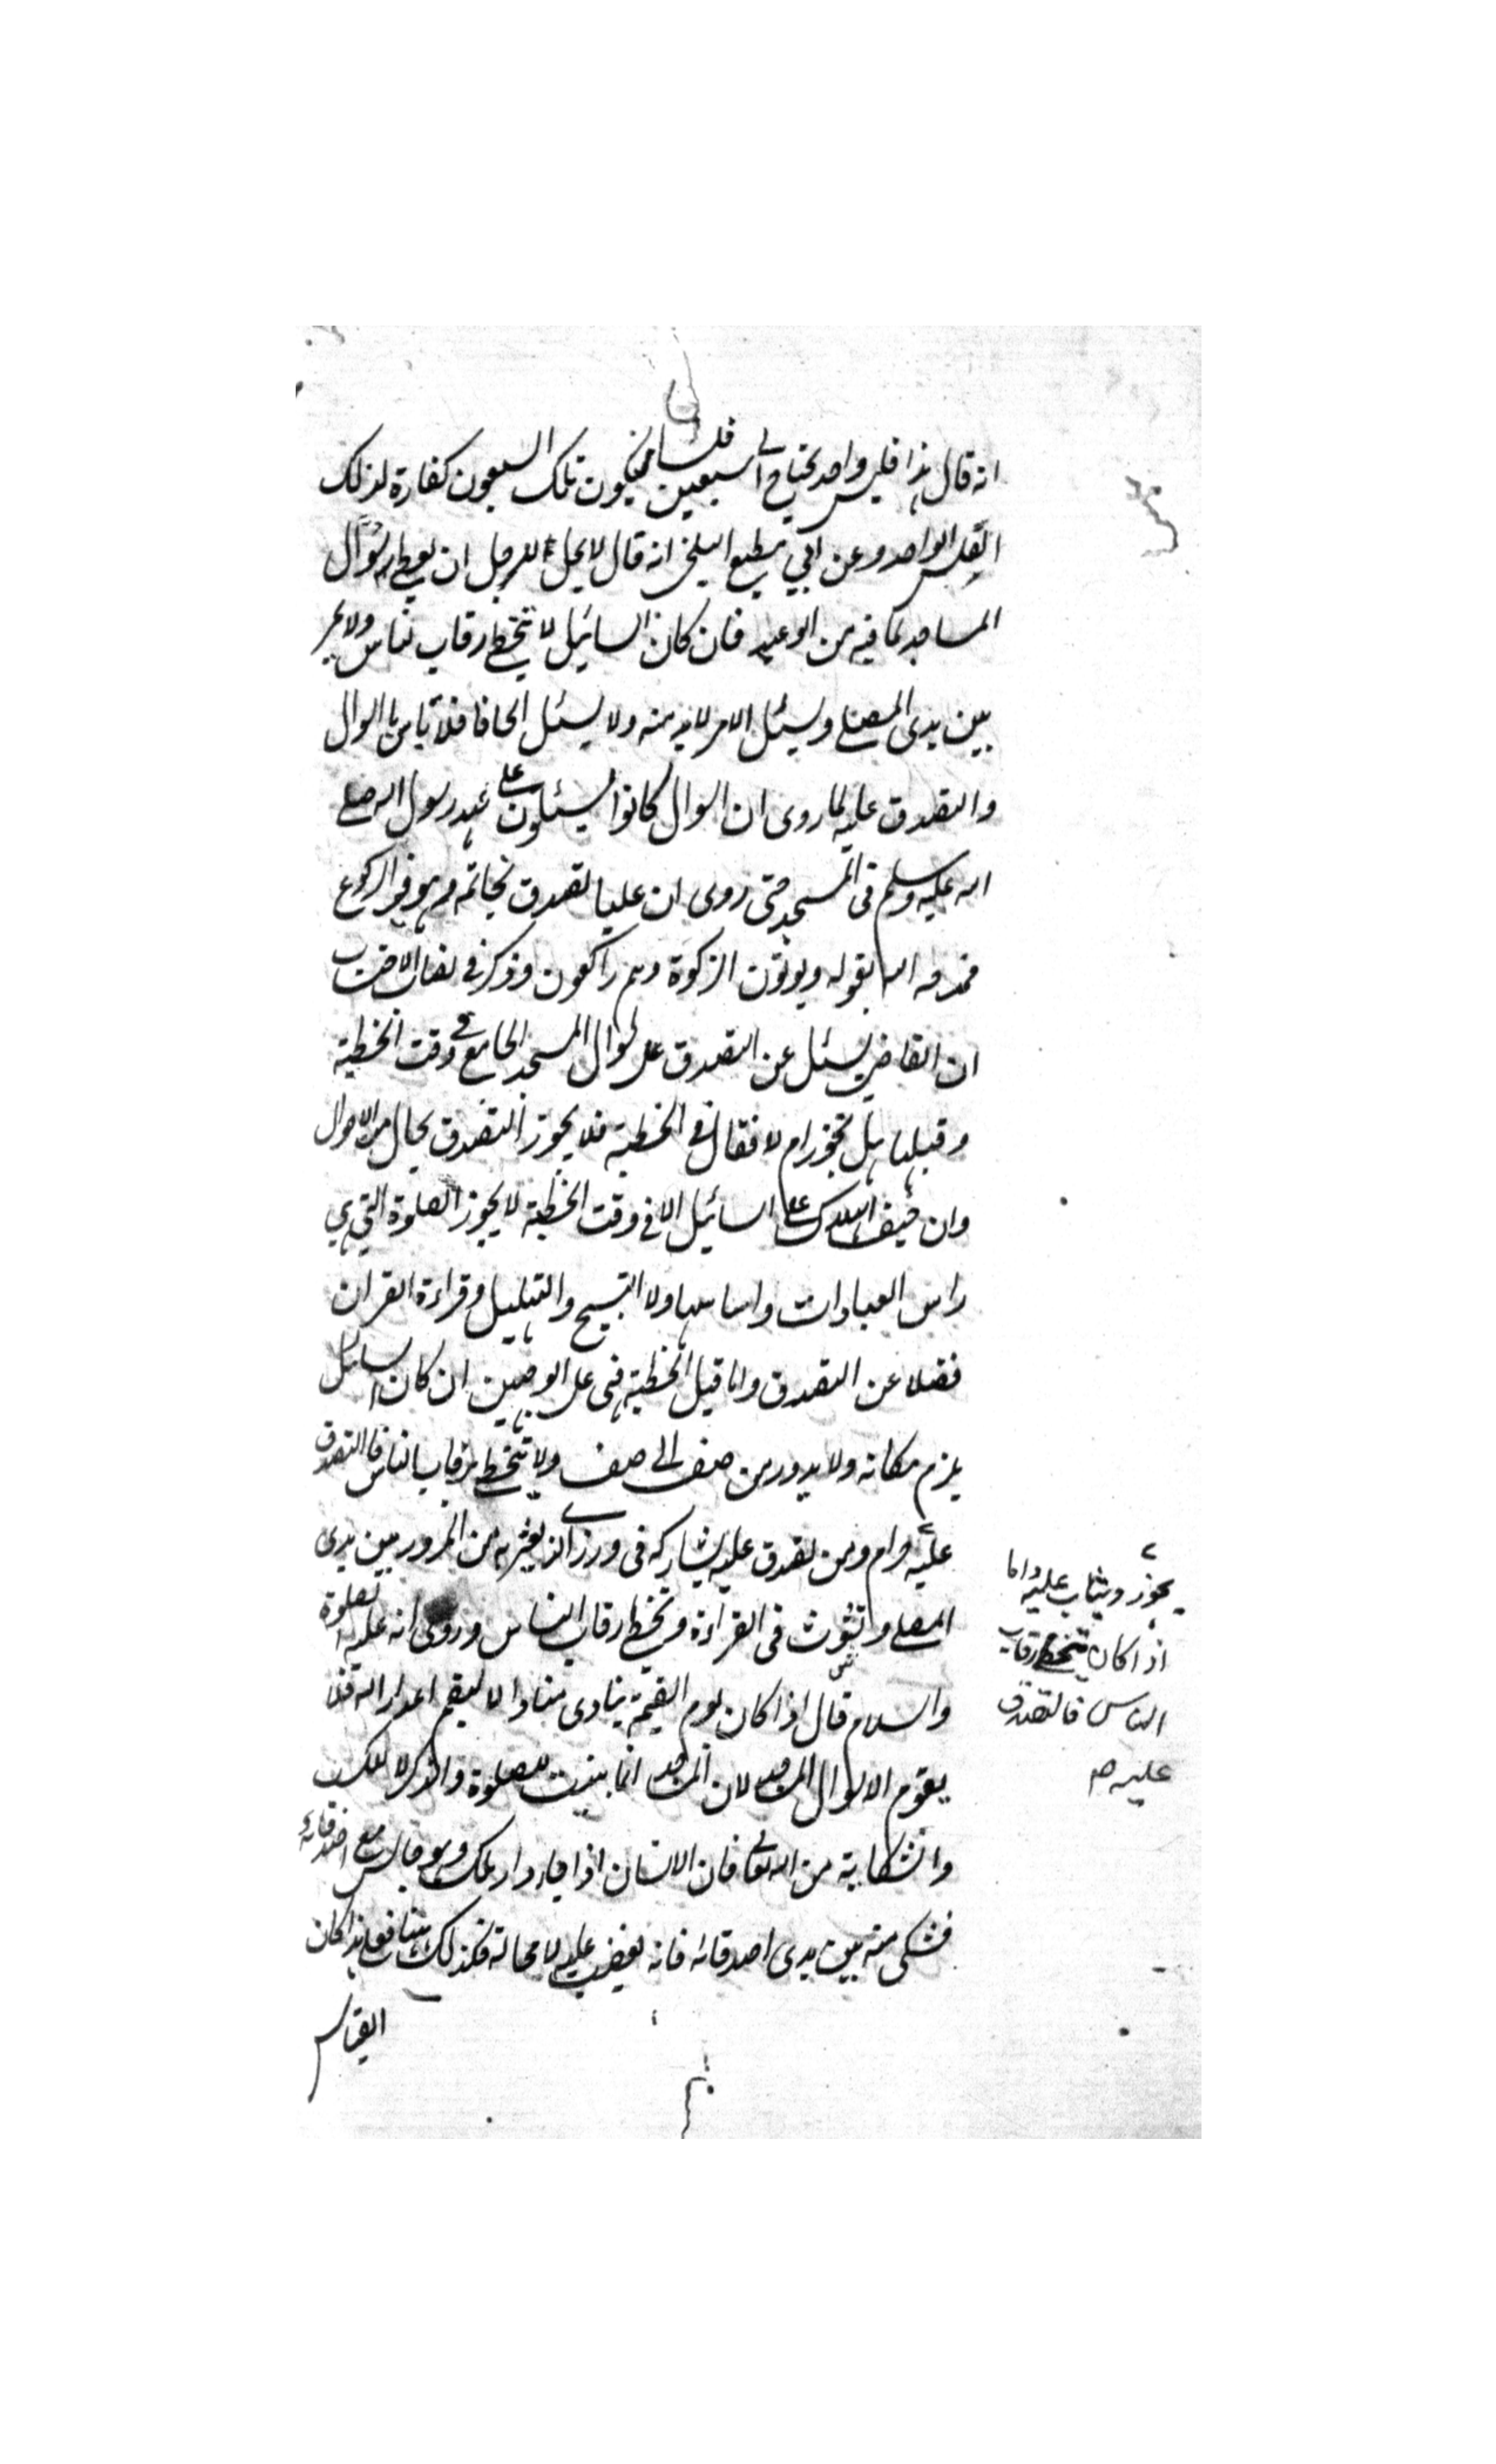 انه قال هذا فلس واحد يحتاج الى سبعين فلسا فيكون تلك السبعون كفارة لذلك
الفلس الواحد وعن ابي مطيع البلخى انه قال لا يحل للرجل ان يعطى سؤال
المساجد لما فيه من الوعيد فان كان السائل لا يتخطى رقاب الناس ولا يمر
بين يدى المصلى ويسئل الامر لابد منه ولا يسئل الحافا فلا باس بالسوال
والتصدق عليه لما روى ان السوال كانوا يسئلون على عهد رسول الله صلى
الله عليه وسلم فى المسجد حتى روى ان عليا تصدق بخاتمه وهو فى الركوع
فمدحه الله بقوله ويوتون الزكوة وهم راكعون وذكر فى نصاب الاحتساب
ان القاضى يسئل عن التصدق على سوال المسجد الجامع فى وقت الخطبة
وقبلها هل يجوز ام لا فقال فى الخطبة فلا يجوز التصدق بحال من الاحوال
وان خيف الهلاك على السائل لان فى وقت الخطبة لا يجوز الصلوة التى هى
راس العبادات واساسها ولا التسبيح والتهليل وقراءة القران
فضلا عن التصدق واما قبل الخطبة فهى على الوجهين ان كان السائل
يلزم مكانه ولا يدور من صف الى صف ولا يتخطى رقاب الناس فالتصدق
عليه حرام ومن تصدق عليه يشاركه فى وزر الذى يعتريه من المرور بين يدى
المصلى وتشوش فى القراءة وتخطى رقاب الناس وروى انه عليه الصلوة
والسلام قال اذا كان يوم القيمة ينادى مناد الا ليقم اعداء الله فلا
يقوم الا سوال المساجد لان المساجد انما بنيت للصلوة والذكر لا للكسب
والشكاية من الله تعالى فان الانسان اذا جاء دار ملك وهو جالس مع اصدقائه
فشكى منه بين يدى اصدقائه فانه يغضب عليه لا محالة فكذلك هذا كان
القياس
يجوز ويثاب عليه واما
اذا كان يتخطى رقاب
الناس فالتصدق
عليه صح